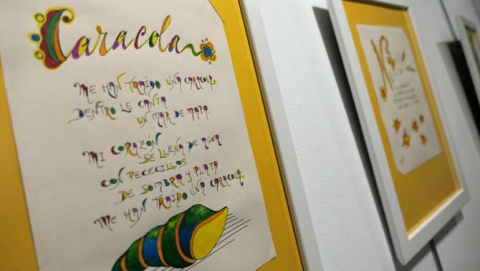 Caracola
ME HAN TRAÍDO UNA CARACOLA
DENTRO LE CANTA
UN MAR DE MAPA
MI CORAZÓN
SE LLENA DE AGUA
CON PECECILLOS
DE SOMBRA Y PLATA
ME HAN TRAÍDO UNA CARACOLA